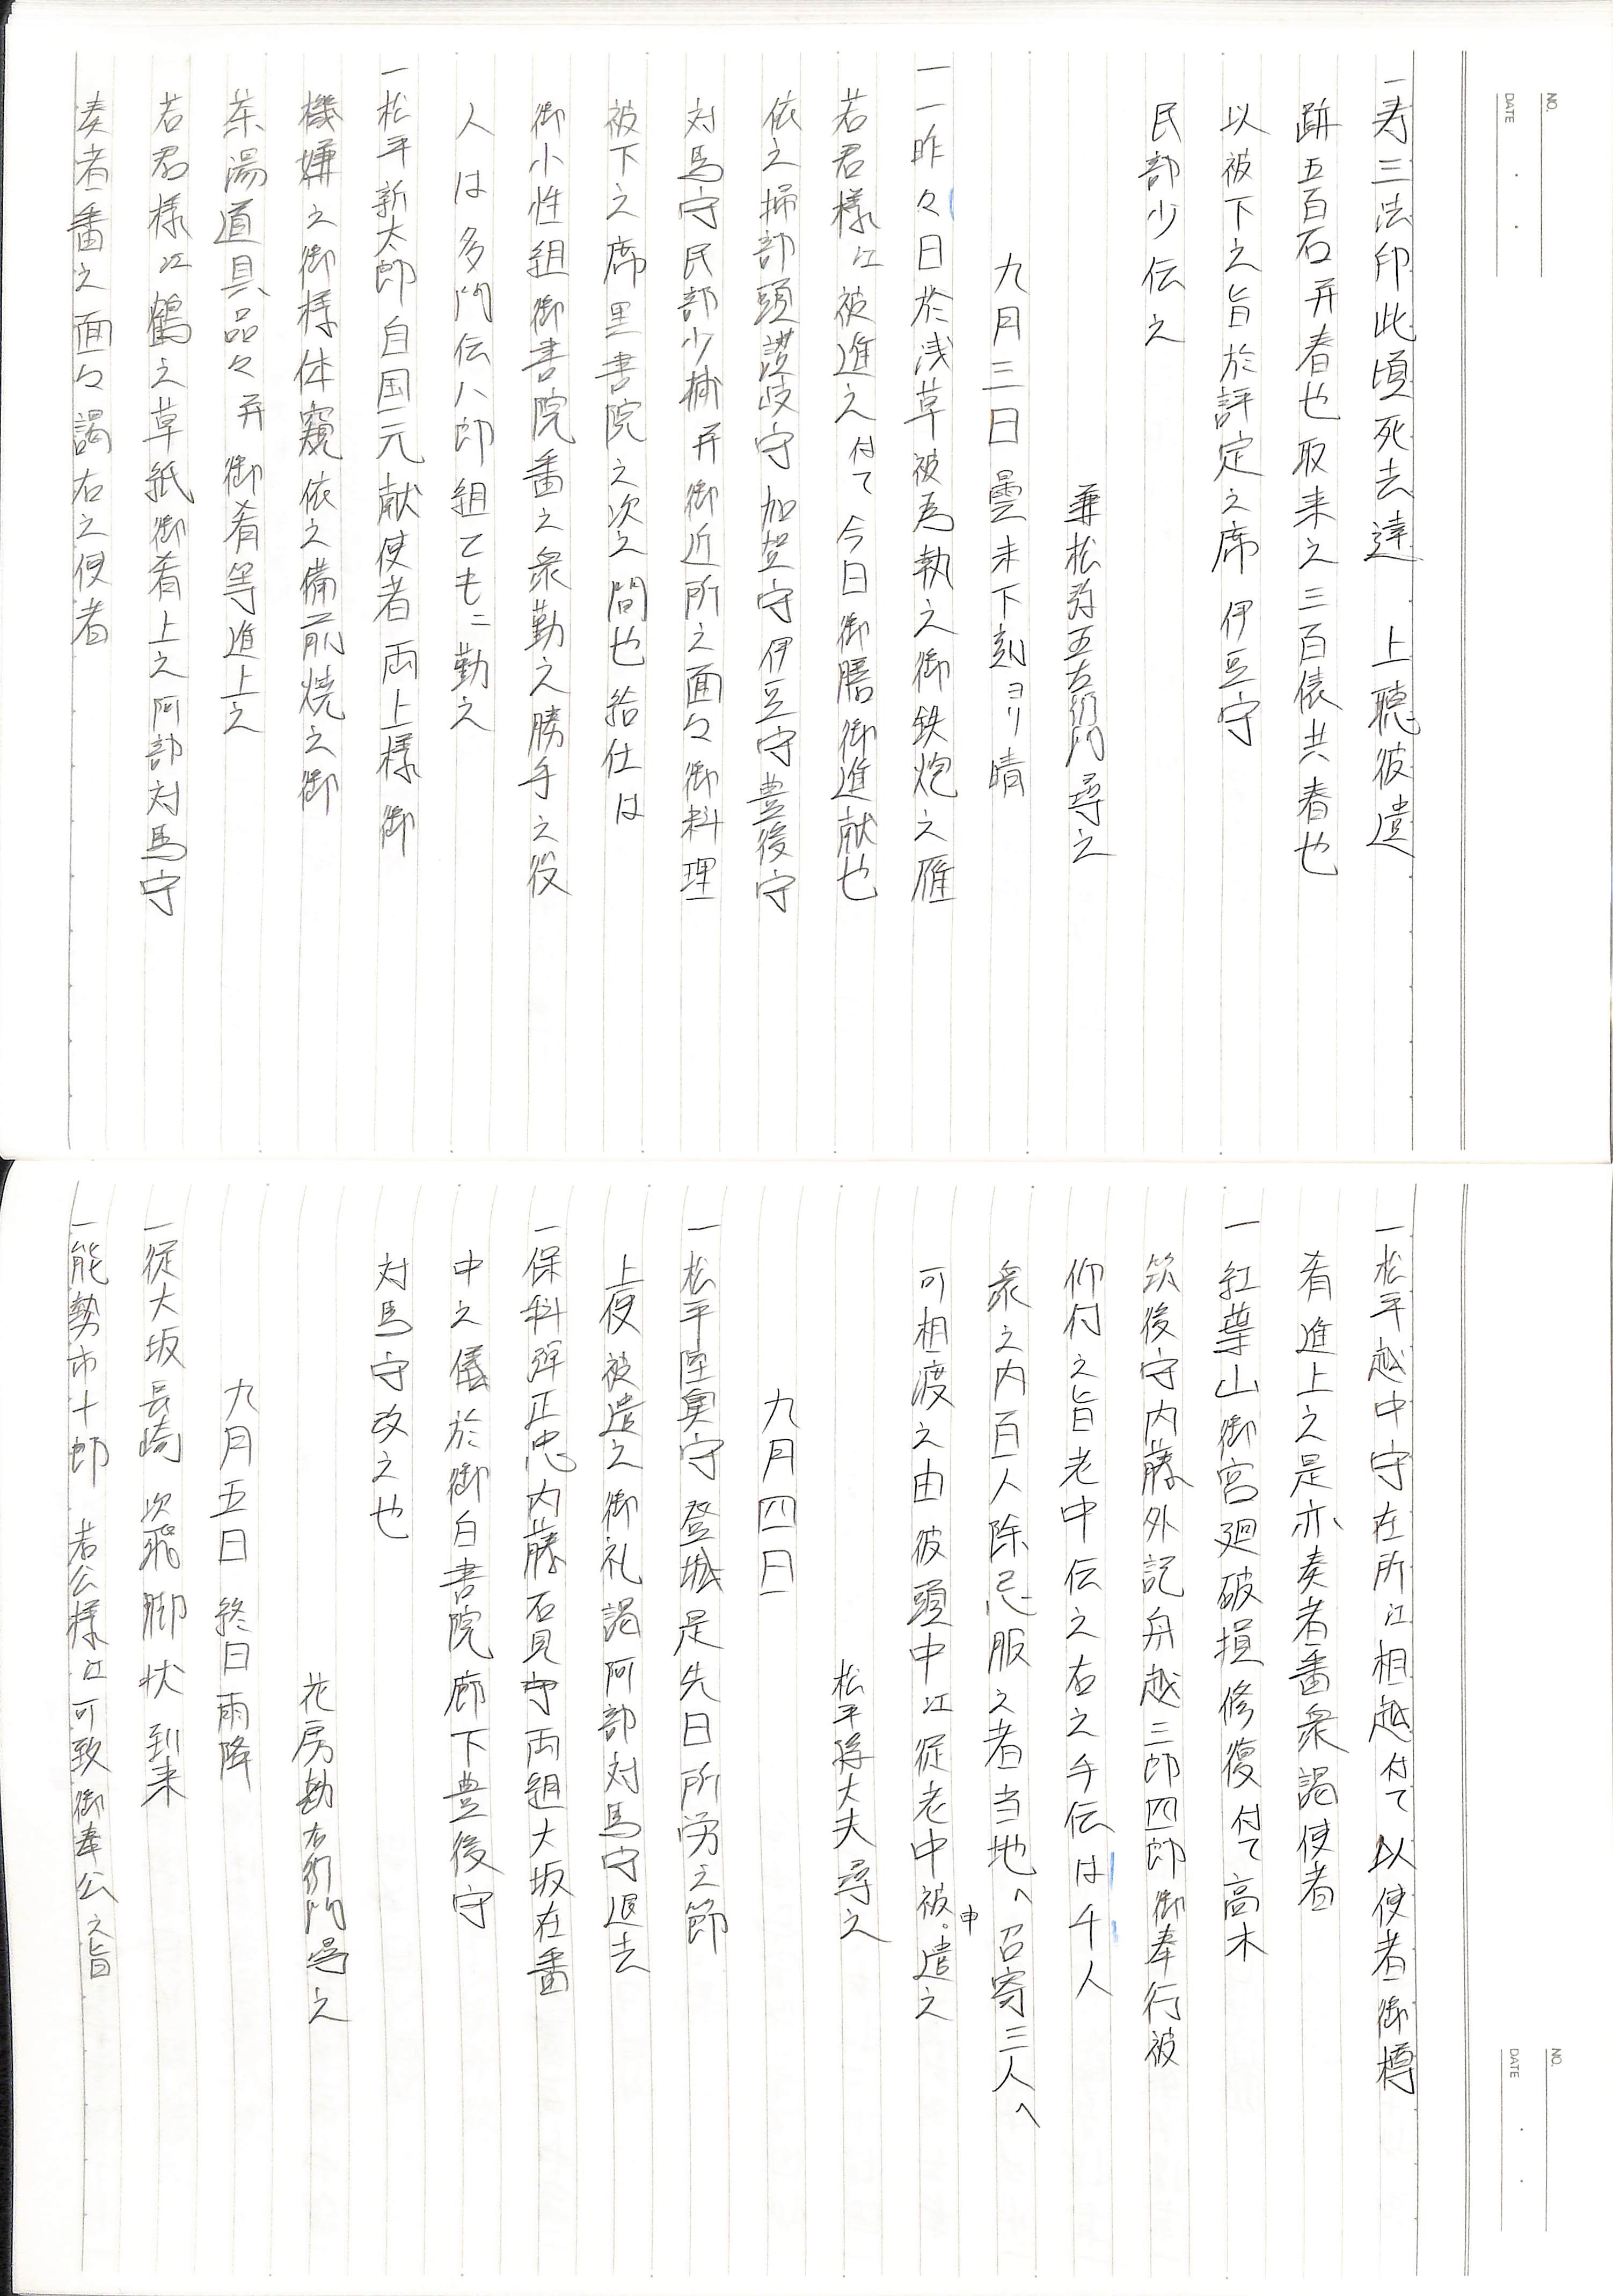 一寿三法印此頃死去達 上聴彼遺
跡五百石并春也取来之三百俵共春也
以被下之旨於評定之席 伊豆守
民部少伝之
兼松弥五左衛門尋之
九月三日 曇未下刻ヨリ晴
一一昨々日於浅草被為執之御鉄炮之雁
若君様江被進之付て今日御膳御進献也
依之掃部頭讃岐守加賀守伊豆守豊後守
対馬守民部少捕并御近所之面々御料理
被下之席黒書院之次之間也給仕は
御小性組御書院番之衆勤之勝手之役
人は多門伝八郎組てもニ勤之
一松平新太郎自国元献使者両上様御
機嫌之御様体窺依之備前焼之御
茶湯道具品々并御肴等進上之
若君様江鶴之草紙御肴上之阿部対馬守
奏者番之面々謁右之使者
一松平越中守在所江相越付て以使者御樽
肴進上之是亦奏者番衆謁使者
一紅葉山御宮廻破損修復付て高木
筑後守内藤外記舟越三郎四郎御奉行被
仰付之旨老中伝之右之手伝は千人
衆之内百人除忌服之者当地へ召寄三人へ
可相渡之由彼頭中江従老中被申遣之
松平隼大夫尋之
九月四日
一松平陸奥守登城是先日所労之節
上使被遣之御礼謁阿部対馬守退去
一保科弾正忠内藤石見守両組大坂在番
中之儀於御白書院廊下豊後守
対馬守改之也
花房勘右衛門尋之
九月五日 終日雨降
一従大坂長崎次飛脚状到来
一能勢市十郎 若公様江可致御奉公之旨
NO.
DATE
NO.
DATE